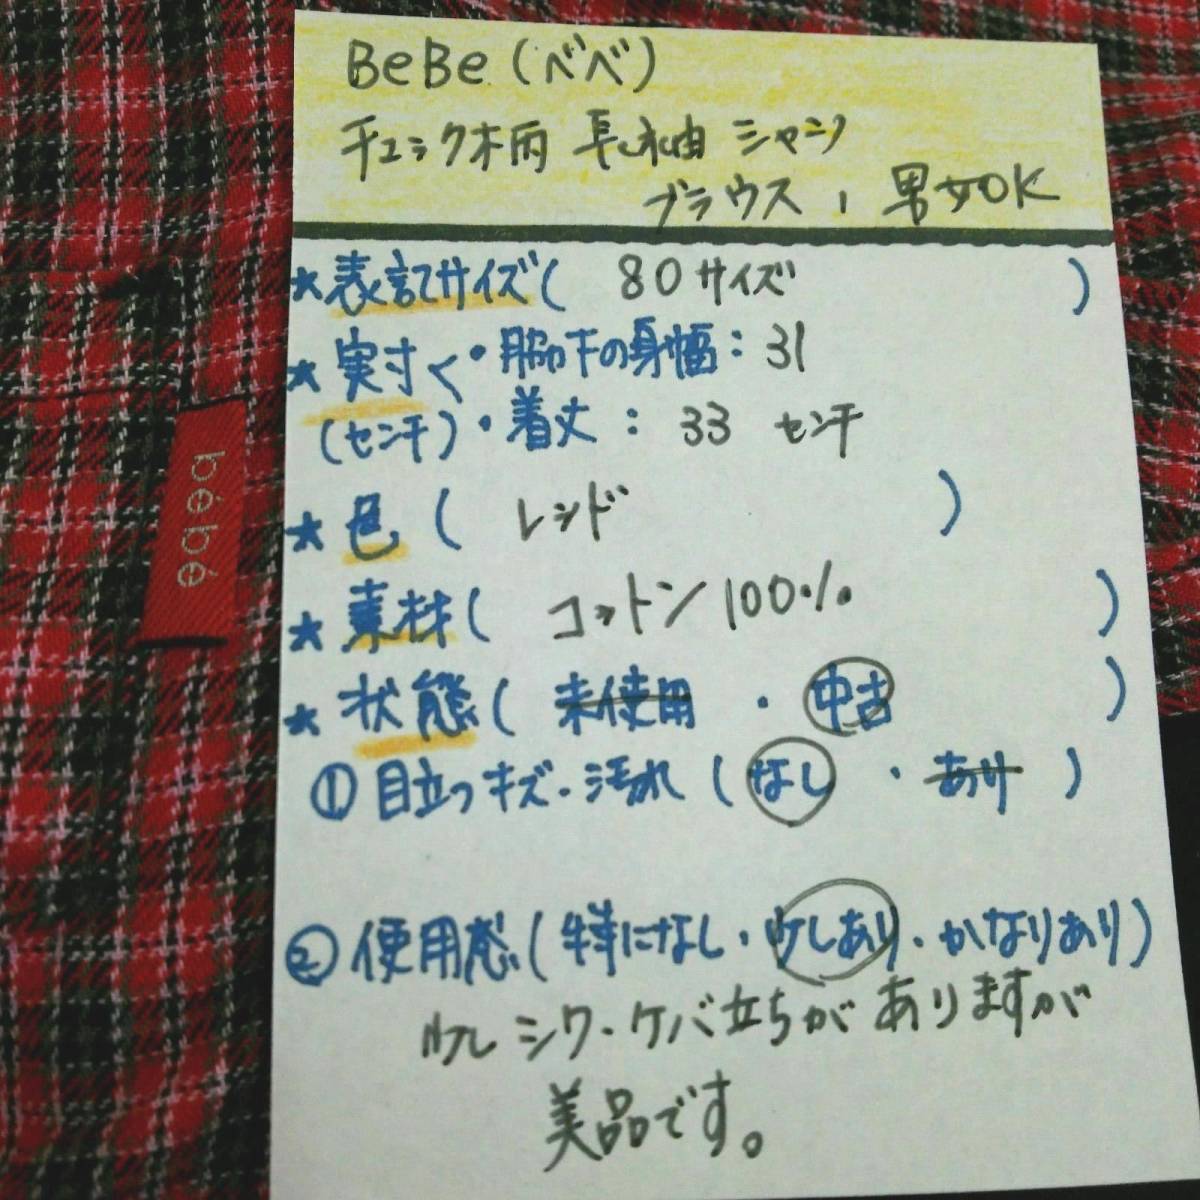 BeBe (べべ)
チェック柄 長袖 シャツ
ブラウス , 男女OK
★表記サイズ( 80サイズ )
★実寸く・脇下の身幅:31
(センチ)・着丈:33 センチ
★色( レッド )
★素材( コットン100% )
★状態( 未使用・中古 )
①目立つキズ・汚れ(なし・あり)
②使用感(特になし・少しあり・かなりあり)
少し シワ・ケバ立ちが ありますが
美品です。
bébé